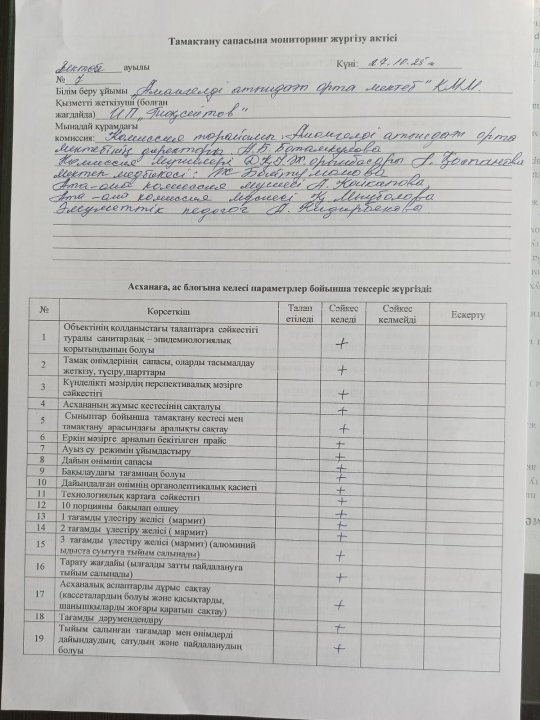 Тамақтану сапасына мониторинг жүргізу актісі
Ақтөбе ауылы Күні: 27.10.25ж
№ 7
Білім беру ұйымы "Амангелді атындағы орта мектеб" КММ.
Қызметті жеткізуші (болған
жағдайда) ИП
Мынадай құрамдағы
комиссия: Комиссия төрайымы: Амангелді атындағы орта
мектебінің директоры: Н.Б.
Комиссия мүшелері Д.І.Ж. орынбасары
мектеп медбикесі: Ж
Ата-ана комиссия мүшесі А.
Ата-ана комиссия мүшесі
Әлуметтік педогог А.
Асханаға, ас блогына келесі параметрлер бойынша тексеріс жүргізді:
№ Көрсеткіш Талап етіледі Сәйкес келеді Сәйкес келмейді Ескерту
1 Объектінің қолданыстағы талаптарға сәйкестігі
туралы санитарлық – эпидемиологиялық +
қорытындының болуы
2 Тамақ өнімдерінің сапасы, оларды тасымалдау
жеткізу, түсіру,шарттары +
3 Күнделікті мәзірдің перспективалық мәзірге
сәйкестігі +
4 Асхананың жұмыс кестесінің сақталуы +
5 Сыныптар бойынша тамақтану кестесі мен
тамақтану арасындағы аралықты сақтау +
6 Еркін мәзірге арналып бекітілген прайс +
7 Ауыз су режимін ұйымдастыру +
8 Дайын өнімнің сапасы +
9 Бақылаудағы тағамның болуы +
10 Дайындалған өнімнің органолептикалық қасиеті +
11 Технологиялық картаға сәйкестігі +
12 10 порцияны бақылап өлшеу +
13 1 тағамды үлестіру желісі (мармит) +
14 2 тағамды үлестіру желісі ( мармит) +
15 3 тағамды үлестіру желісі (мармит) (алюминий
ыдыста суытуға тыйым салынады) +
16 Тарату жағдайы (ылғалды затты пайдалануға
тыйым салынады) +
17 Асханалық аспаптарды дұрыс сақтау
(кассеталардың болуы және қасықтарды, +
шанышқыларды жоғары қаратып сақтау)
18 Тағамды дәрумендендіру +
19 Тыйым салынған тағамдар мен өнімдерді
дайындаудың, сатудың және пайдаланудың +
болуы